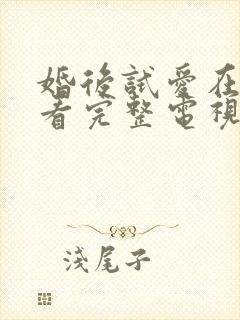 婚後試愛在
看完整電視
淺尾子